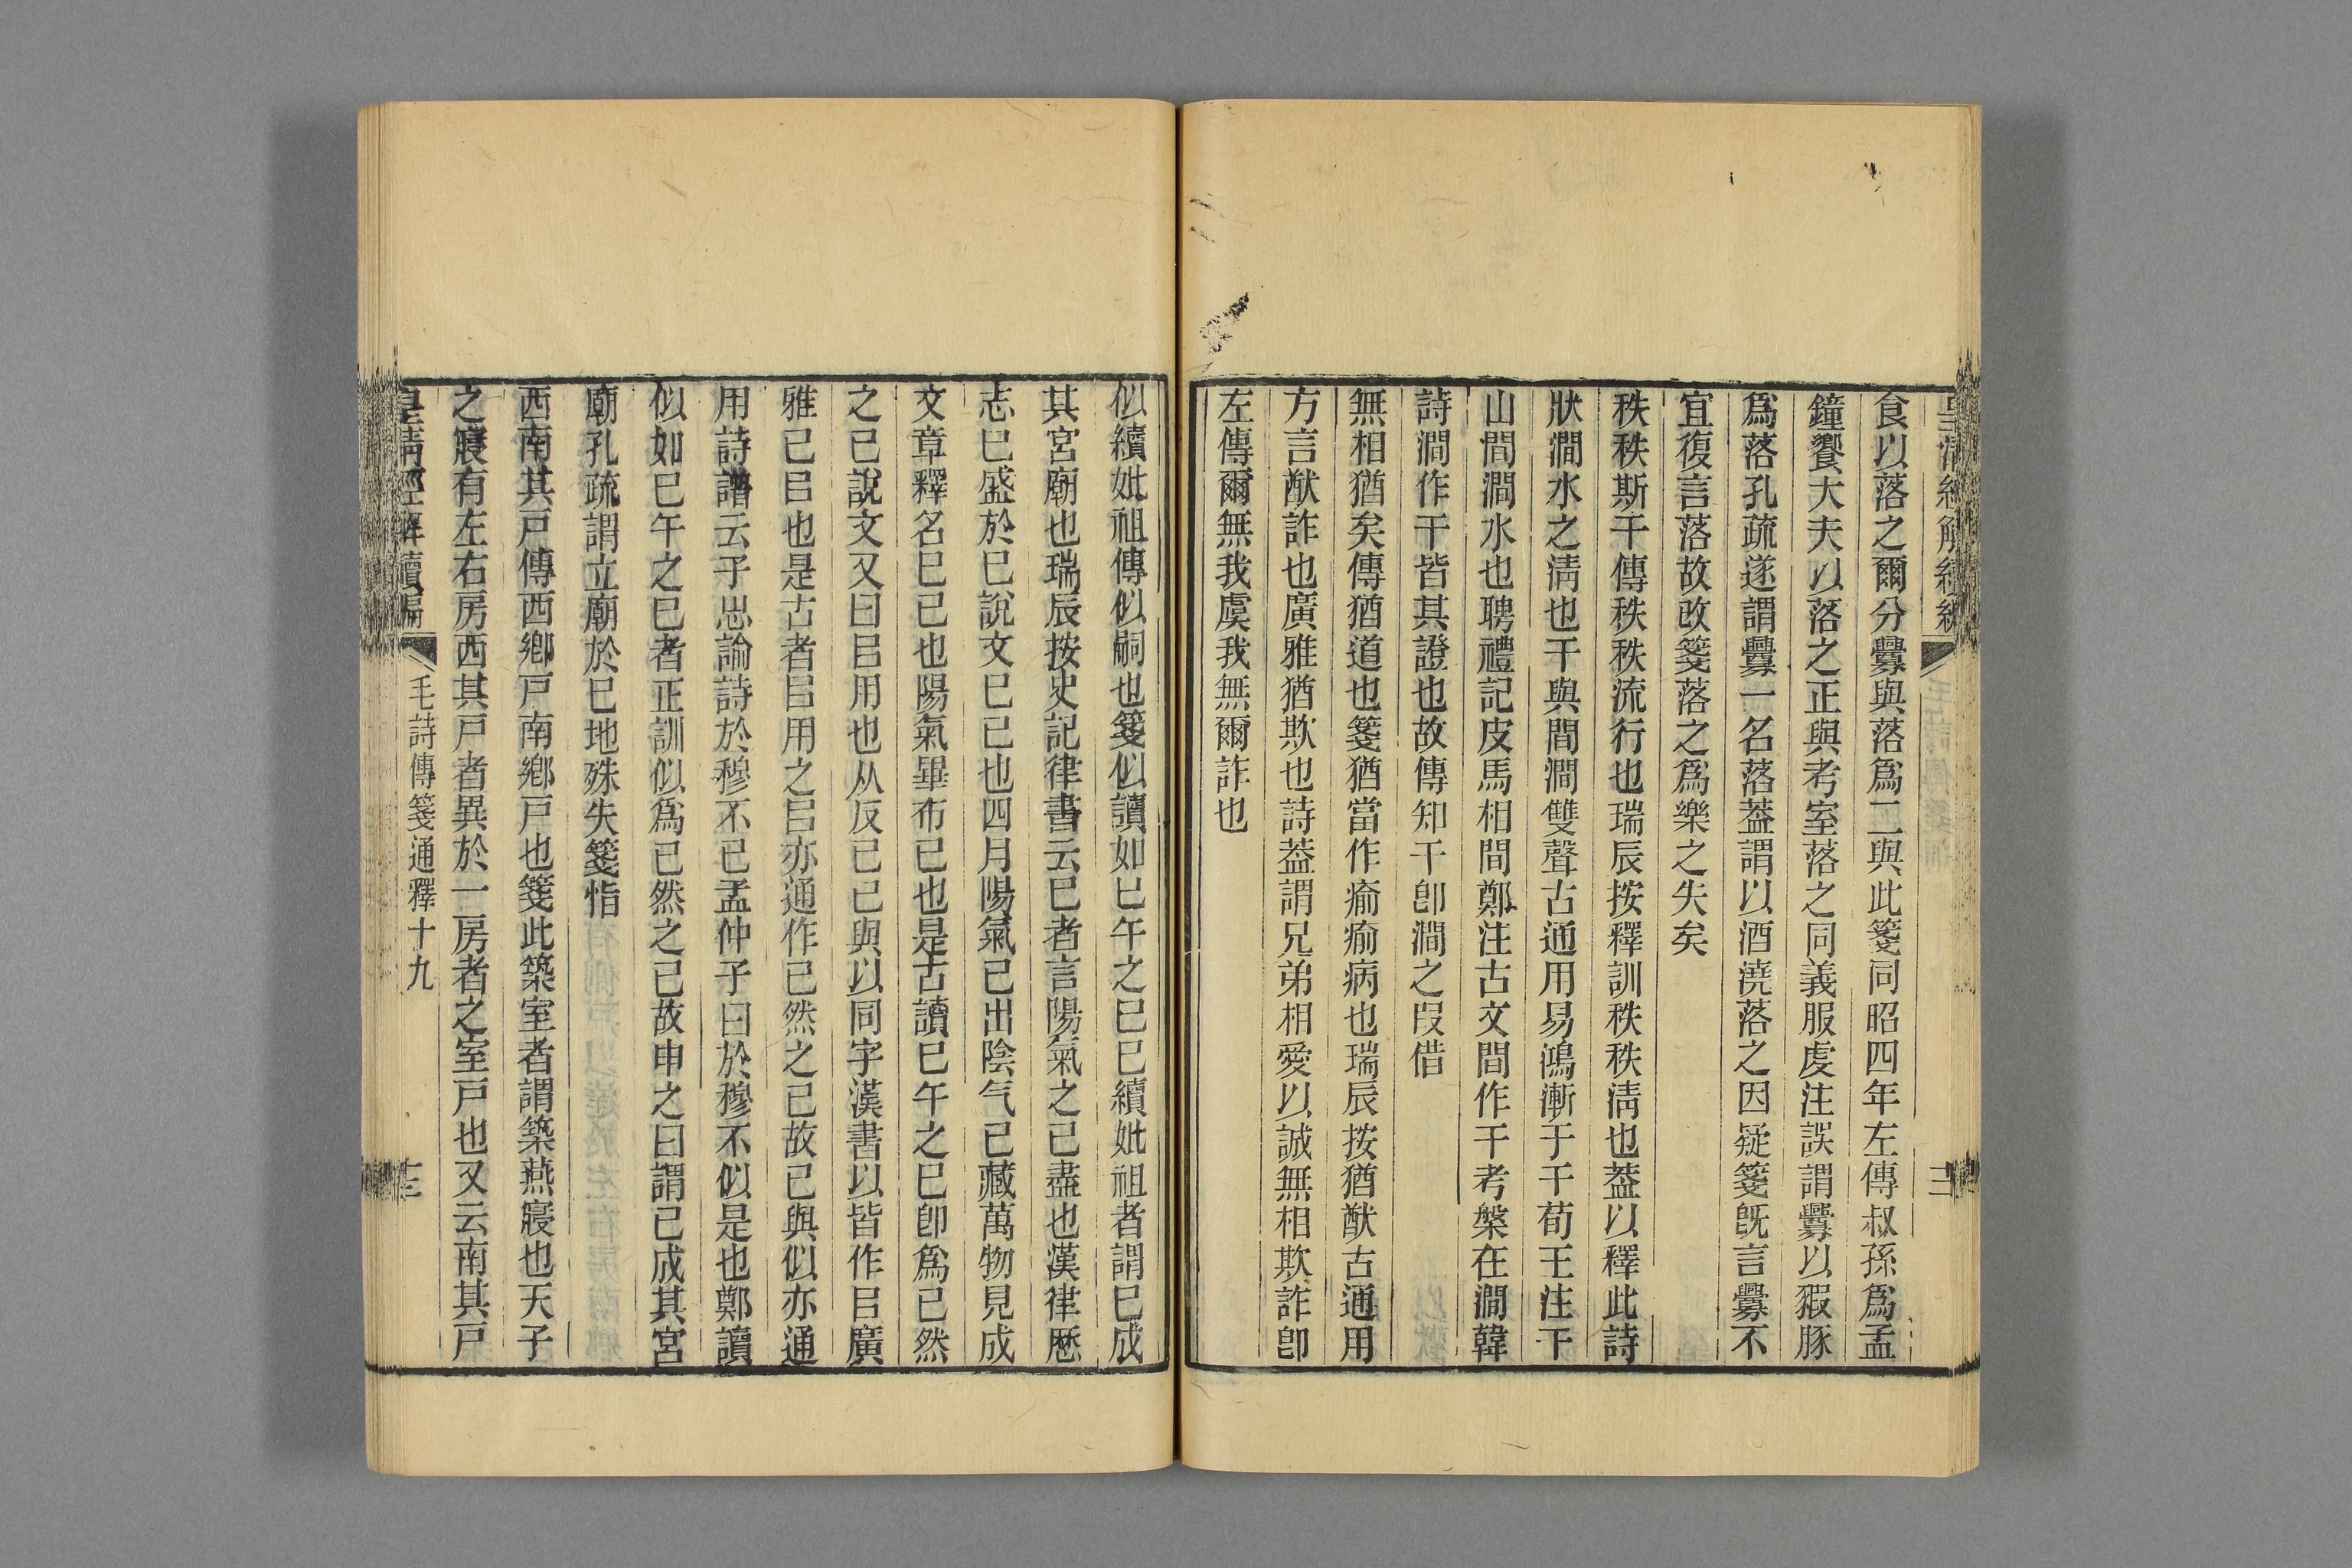 食以落之爾分釁與落爲二與此箋同昭四年左傳叔孫爲孟
鐘饗大夫以落之正與考室落之同義服虔注誤謂釁以豭豚
爲落孔疏遂謂釁一名落葢謂以酒澆落之因疑箋旣言釁不
宜復言落故改箋落之爲樂之失矣
秩秩斯干傳秩秩流行也瑞辰按釋訓秩秩淸也葢以釋此詩
狀澗水之淸也干與間澗雙聲古通用易鴻漸于干荀王注干
山間澗水也聘禮記皮馬相間鄭注古文間作干考槃在澗韓
詩澗作干皆其證也故傳知干卽澗之叚借
無相猶矣傳猶道也箋猶當作瘉瘉病也瑞辰按猶猷古通用
方言猷詐也廣雅猶欺也詩葢謂兄弟相愛以誠無相欺詐卽
左傳爾無我虞我無爾詐也
似續妣祖傳似嗣也箋似讀如巳午之巳巳續妣祖者謂巳成
其宮廟也瑞辰按史記律書云巳者言陽氣之已盡也漢律厯
志巳盛於巳說文巳已也四月陽氣已出陰气已藏萬物見成
文章釋名巳已也陽氣畢布已也是古讀巳午之巳卽爲已然
之已說文又曰㠯用也从反已已與以同字漢書以皆作㠯廣
雅已㠯也是古者㠯用之㠯亦通作已然之已故已與似亦通
用詩譜云子思論詩於穆不已孟仲子曰於穆不似是也鄭讀
似如巳午之巳者正訓似爲已然之已故申之曰謂已成其宮
廟孔疏謂立廟於巳地殊失箋恉
西南其戸傳西鄉戸南鄉戸也箋此築室者謂築燕寢也天子
之寢有左右房西其戸者異於一房者之室戸也又云南其戸
皇淸經解續編
毛詩傳箋通釋十九
十三